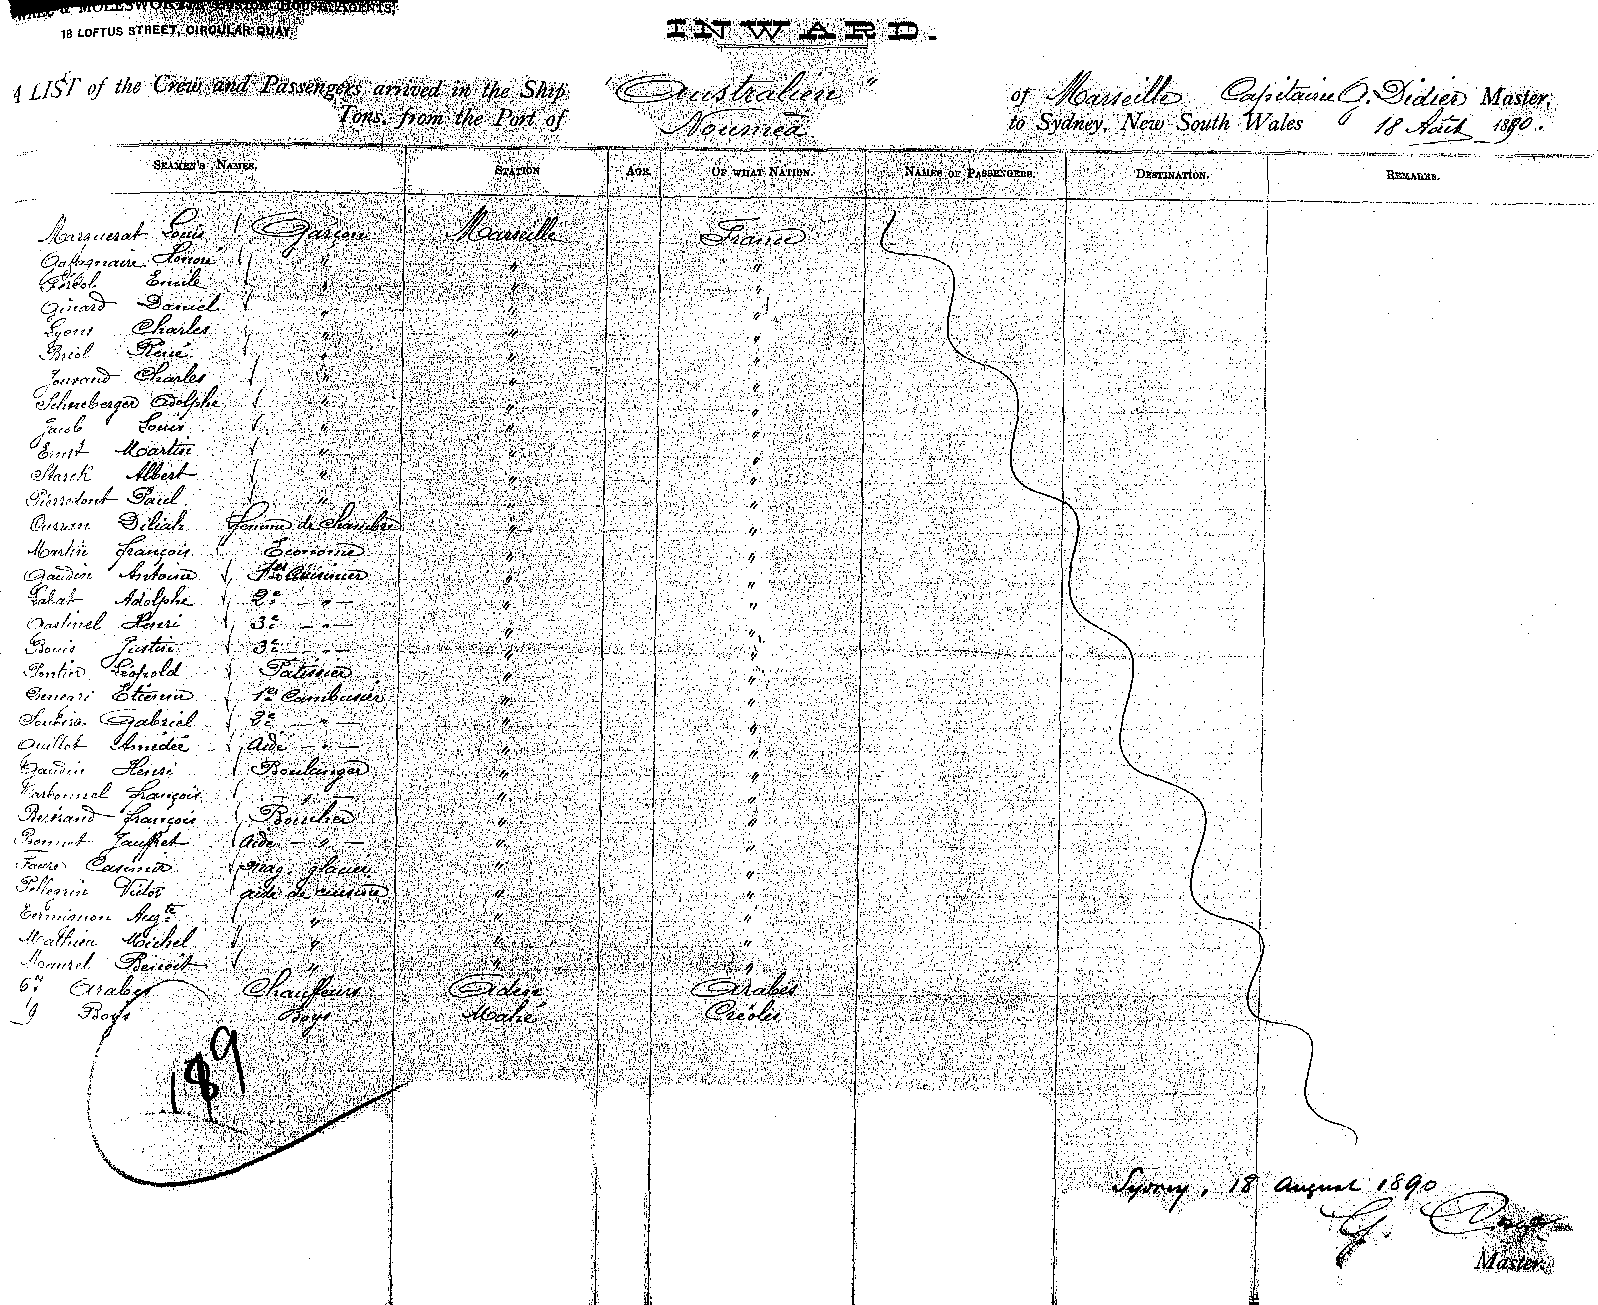 & MOLESWORTH, CUSTOM HOUSE AGENTS,
18 LOFTUS STREET, CIRCULAR QUAY.
INWARD.
A LIST of the Crew and Passengers arrived in the Ship "Australien" of Marseille Capitaine G. Didier Master,
Tons, from the Port of Nouméa to Sydney, New South Wales 18 Août 1890.
SEAMEN'S NAMES. STATION AGE OF WHAT NATION. NAMES OF PASSENGERS. DESTINATION. REMARKS.
Marquerat Louis Garçon Marseille France
Honoré " " "
Emile " " "
Girard Daniel " " "
Lyons Charles " " "
Briol René " " "
Jourand Charles " " "
Schneberger Adolphe " " "
Jacob Louis " " "
Ernst Martin " " "
Starck Albert " " "
Pierredont Paul " " "
Déliah Femme de Chambre " "
Martin François Econome " "
Gaudin Antoine 1er Cuisinier " "
Adolphe 2e — " — " "
Castinel Henri 3e — " — " "
Bouis Justin 3e — " — " "
Pontin Léopold Patissier " "
Etienne 1er Cambusier " "
Gabriel 2e — " — " "
Guillot Amédée Aide — " — " "
Gaudin Henri Boulanger " "
Carbonnel François — " — " "
Bertrand François Boucher " "
Bonnet Jauffret Aide — " — " "
Faure Casimir mag. glacier " "
Pellegrin Victor aide de cuisine " "
Termignon Augte " " "
Mathieu Michel " " "
Maurel Benoit " " "
67 Arabes Chauffeurs Aden Arabes
9 Boys Boys Mahé Créoles
189
Sydney, 18 August 1890
G. Didier
Master.